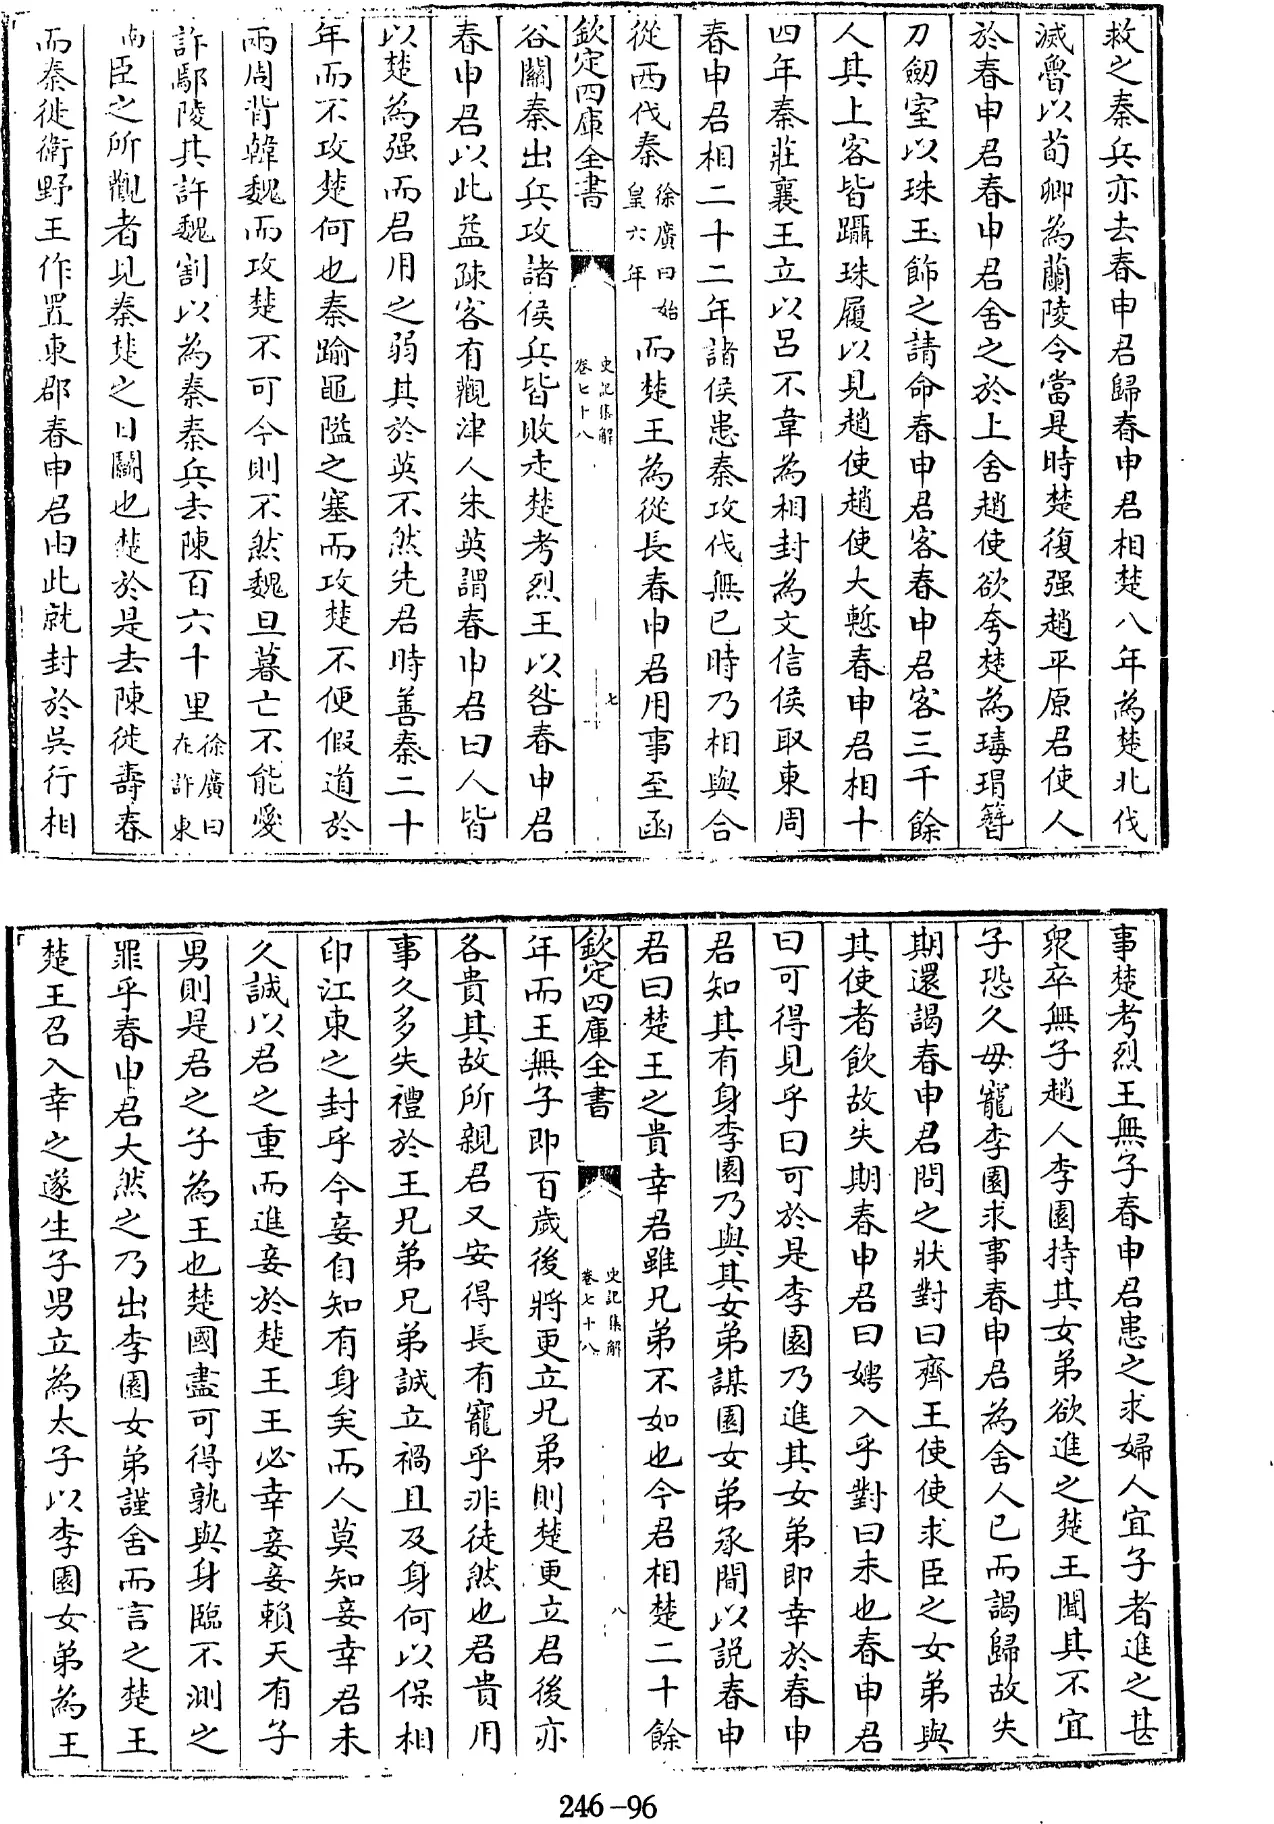 救之秦兵亦去春申君歸春申君相楚八年為楚北伐
滅魯以荀卿為蘭陵令當是時楚復强趙平原君使人
於春申君春申君舍之於上舍趙使欲夸楚為瑇瑁簪
刀劒室以珠玉飾之請命春申君客春申君客三千餘
人其上客皆躡珠履以見趙使趙使大慙春申君相十
四年秦莊襄王立以呂不韋為相封為文信侯取東周
春申君相二十二年諸侯患秦攻伐無已時乃相與合
從西伐秦徐廣曰始皇六年而楚王為從長春申君用事至函
欽定四庫全書
史記集解
卷七十八
七
谷關秦出兵攻諸侯兵皆敗走楚考烈王以咎春申君
春申君以此益疎客有觀津人朱英謂春申君曰人皆
以楚為强而君用之弱其於英不然先君時善秦二十
年而不攻楚何也秦踰黽隘之塞而攻楚不便假道於
兩周背韓魏而攻楚不可今則不然魏旦暮亡不能愛
許鄢陵其許魏割以為秦秦兵去陳百六十里徐廣曰在許東
南臣之所觀者見秦楚之日鬬也楚於是去陳徙壽春
而秦徙衛野王作置東郡春申君由此就封於吳行相
事楚考烈王無子春申君患之求婦人宜子者進之甚
衆卒無子趙人李園持其女弟欲進之楚王聞其不宜
子恐久毋寵李園求事春申君為舍人已而謁歸故失
期還謁春申君問之狀對曰齊王使使求臣之女弟與
其使者飲故失期春申君曰娉入乎對曰未也春申君
曰可得見乎曰可於是李園乃進其女弟即幸於春申
君知其有身李園乃與其女弟謀園女弟承間以說春申
君曰楚王之貴幸君雖兄弟不如也今君相楚二十餘
欽定四庫全書
史記集解
卷七十八
八
年而王無子即百歲後將更立兄弟則楚更立君後亦
各貴其故所親君又安得長有寵乎非徒然也君貴用
事久多失禮於王兄弟兄弟誠立禍且及身何以保相
印江東之封乎今妾自知有身矣而人莫知妾幸君未
久誠以君之重而進妾於楚王王必幸妾妾賴天有子
男則是君之子為王也楚國盡可得孰與身臨不測之
罪乎春申君大然之乃出李園女弟謹舍而言之楚王
楚王召入幸之遂生子男立為太子以李園女弟為王
246-96